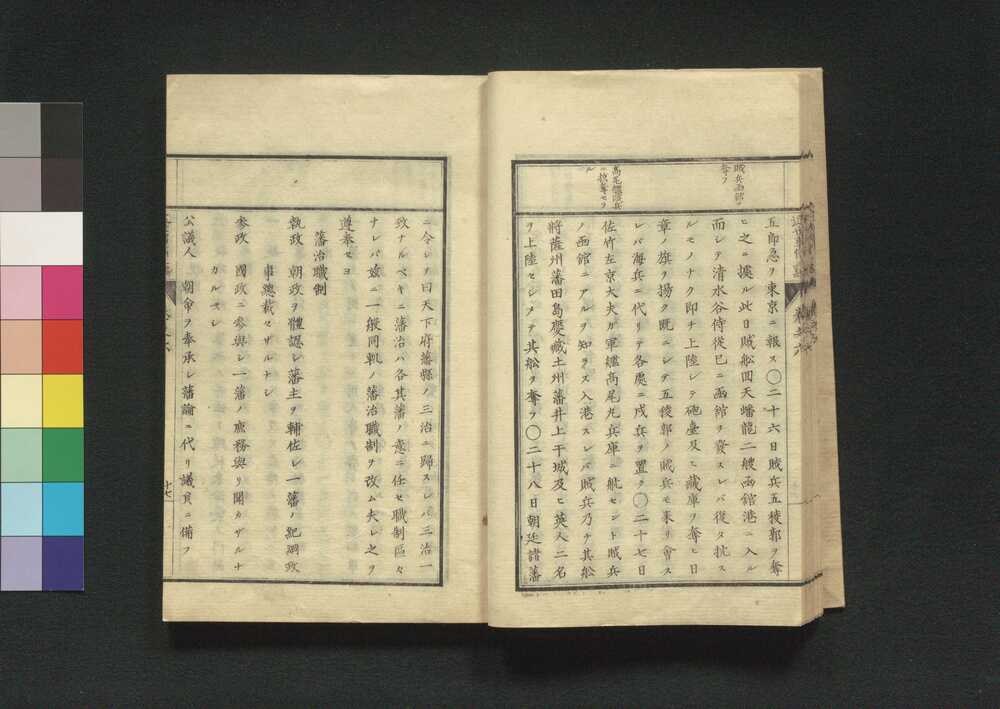 賊兵函館ヲ
奪フ
五郎急ヲ東京ニ報ス〇二十六日賊兵五稜郭ヲ奪
ヒ之ニ據ル此日賊船回天蟠龍二艘函館港ニ入ル
而シテ清水谷侍從已ニ函館ヲ發スレバ復タ抗ス
ルモノナク即チ上陸シテ砲臺及ヒ藏庫ヲ奪ヒ日
章ノ旗ヲ揚ク既ニシテ五稜郭ノ賊兵モ來リ會ス
高尾艦賊兵
ニ掠奪セラ
ル
レバ海兵ニ代リテ各處ニ戍兵ヲ置ク〇二十七日
佐竹左京大夫ガ軍艦高尾丸兵庫ニ航セント賊兵
ノ函館ニアルヲ知ラズ入港スレバ賊兵乃チ其船
將薩州藩田島慶藏土州藩井上干城及ヒ英人二名
ヲ上陸セシメテ其船ヲ奪フ〇二十八日朝廷諸藩
ニ令シテ曰天下府藩縣ノ三治ニ歸スレバ三治一
致ナルベキニ藩治ハ各其藩ノ意ニ任セ職制區々
ナレバ玆ニ一般同軌ノ藩治職制ヲ改ム夫レ之ヲ
遵奉セヨ
藩治職制
執政 朝政ヲ體認シ藩主ヲ輔佐シ一藩ノ紀綱政
事總裁セザルナシ
參政 國政ニ參與シ一藩ノ庶務與リ聞カザルナ
カルベシ
公議人 朝命ヲ奉承シ藩論ニ代リ議員ニ備フ
十七